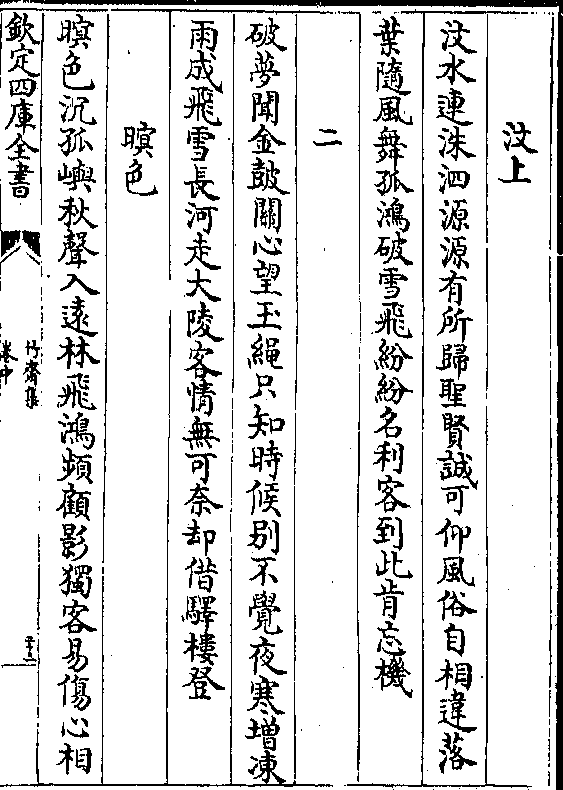 汶上
汶水連洙泗源源有所歸聖賢誠可仰風俗自相違落
葉隨風舞孤鴻破雪飛紛紛名利客到此肯忘機
二
破夢聞金鼓關心望玉繩只知時候别不覺夜寒增凍
雨成飛雪長河走大陵客情無可奈却借驛樓登
暝色
暝色沉孤嶼秋聲入遠林飛鴻頻顧影獨客易傷心相
欽定四庫全書
竹齋集
卷中